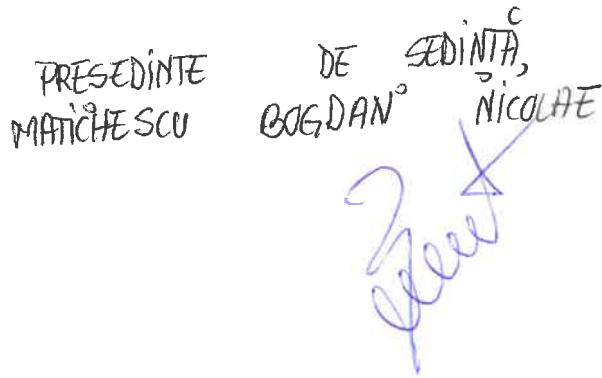 PRESEDINTE DE SEDINTĂ,
MATICHESCU BOGDAN NICOLAE